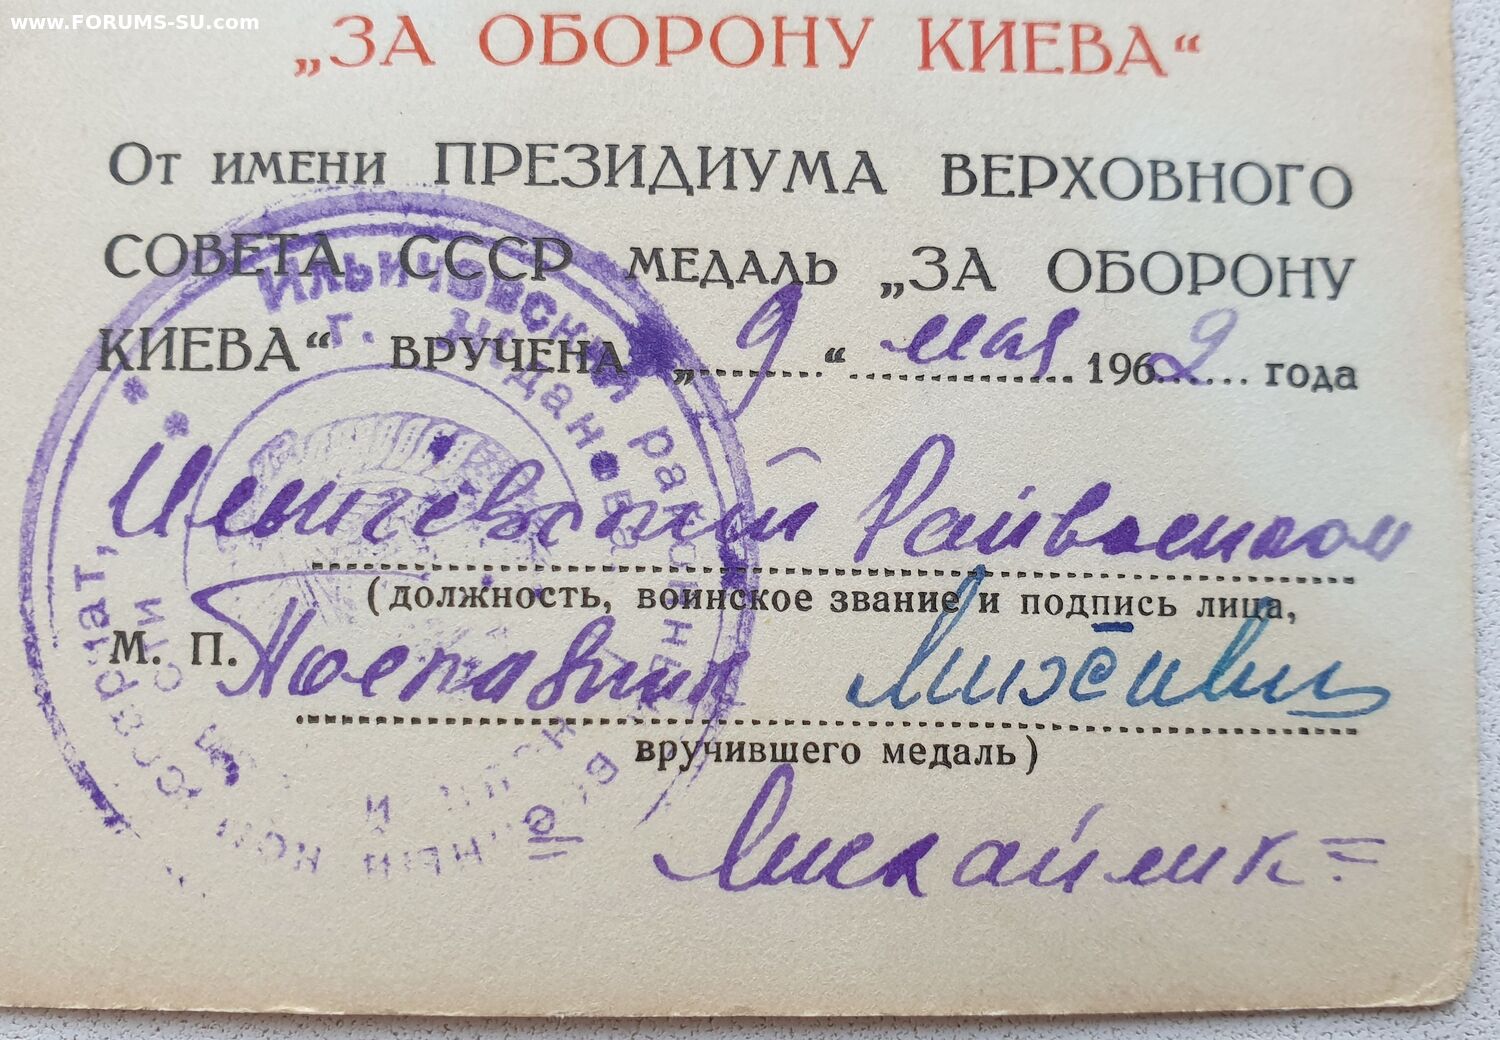 www.FORUMS-SU.com
„ЗА ОБОРОНУ КИЕВА“
От имени ПРЕЗИДИУМА ВЕРХОВНОГО
СОВЕТА СССР МЕДАЛЬ „ЗА ОБОРОНУ
КИЕВА“ ВРУЧЕНА „9“ мая 1962 года
Ильичёвский Райвоенком
(должность, воинское звание и подпись лица,
М. П.
Подполковник
вручившего медаль)
Михайлик
Ильичевский районный
г. Жданов